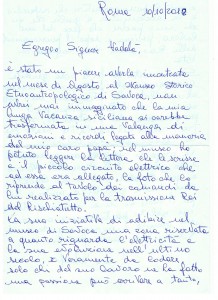 Roma 10/10/2012
Egregio Signor
è stato un piacere averla incontrata
nel mese di Agosto al Museo Storico
Etnoantropologico di Savoca, non
avrei mai immaginato che la mia
lunga vacanza siciliana si sarebbe
trasformata in una valanga di
emozioni e ricordi legati alla memoria
del mio caro papà; nel museo ho
potuto leggere la lettera che le scrisse
e il piccolo circuito elettrico che
ad essa era allegato, la foto che lo
riprende al tavolo dei comandi da
lui realizzato per la trasmissione Rai
del Rischiatutto.
La sua iniziativa di adibire nel
museo di Savoca una zona riservata
a quanto riguarda l'elettricità e
la sua evoluzione nell'ultimo
secolo, è veramente da lodare,
solo chi del suo lavoro ne ha fatto
una passione può arrivare a tanto,